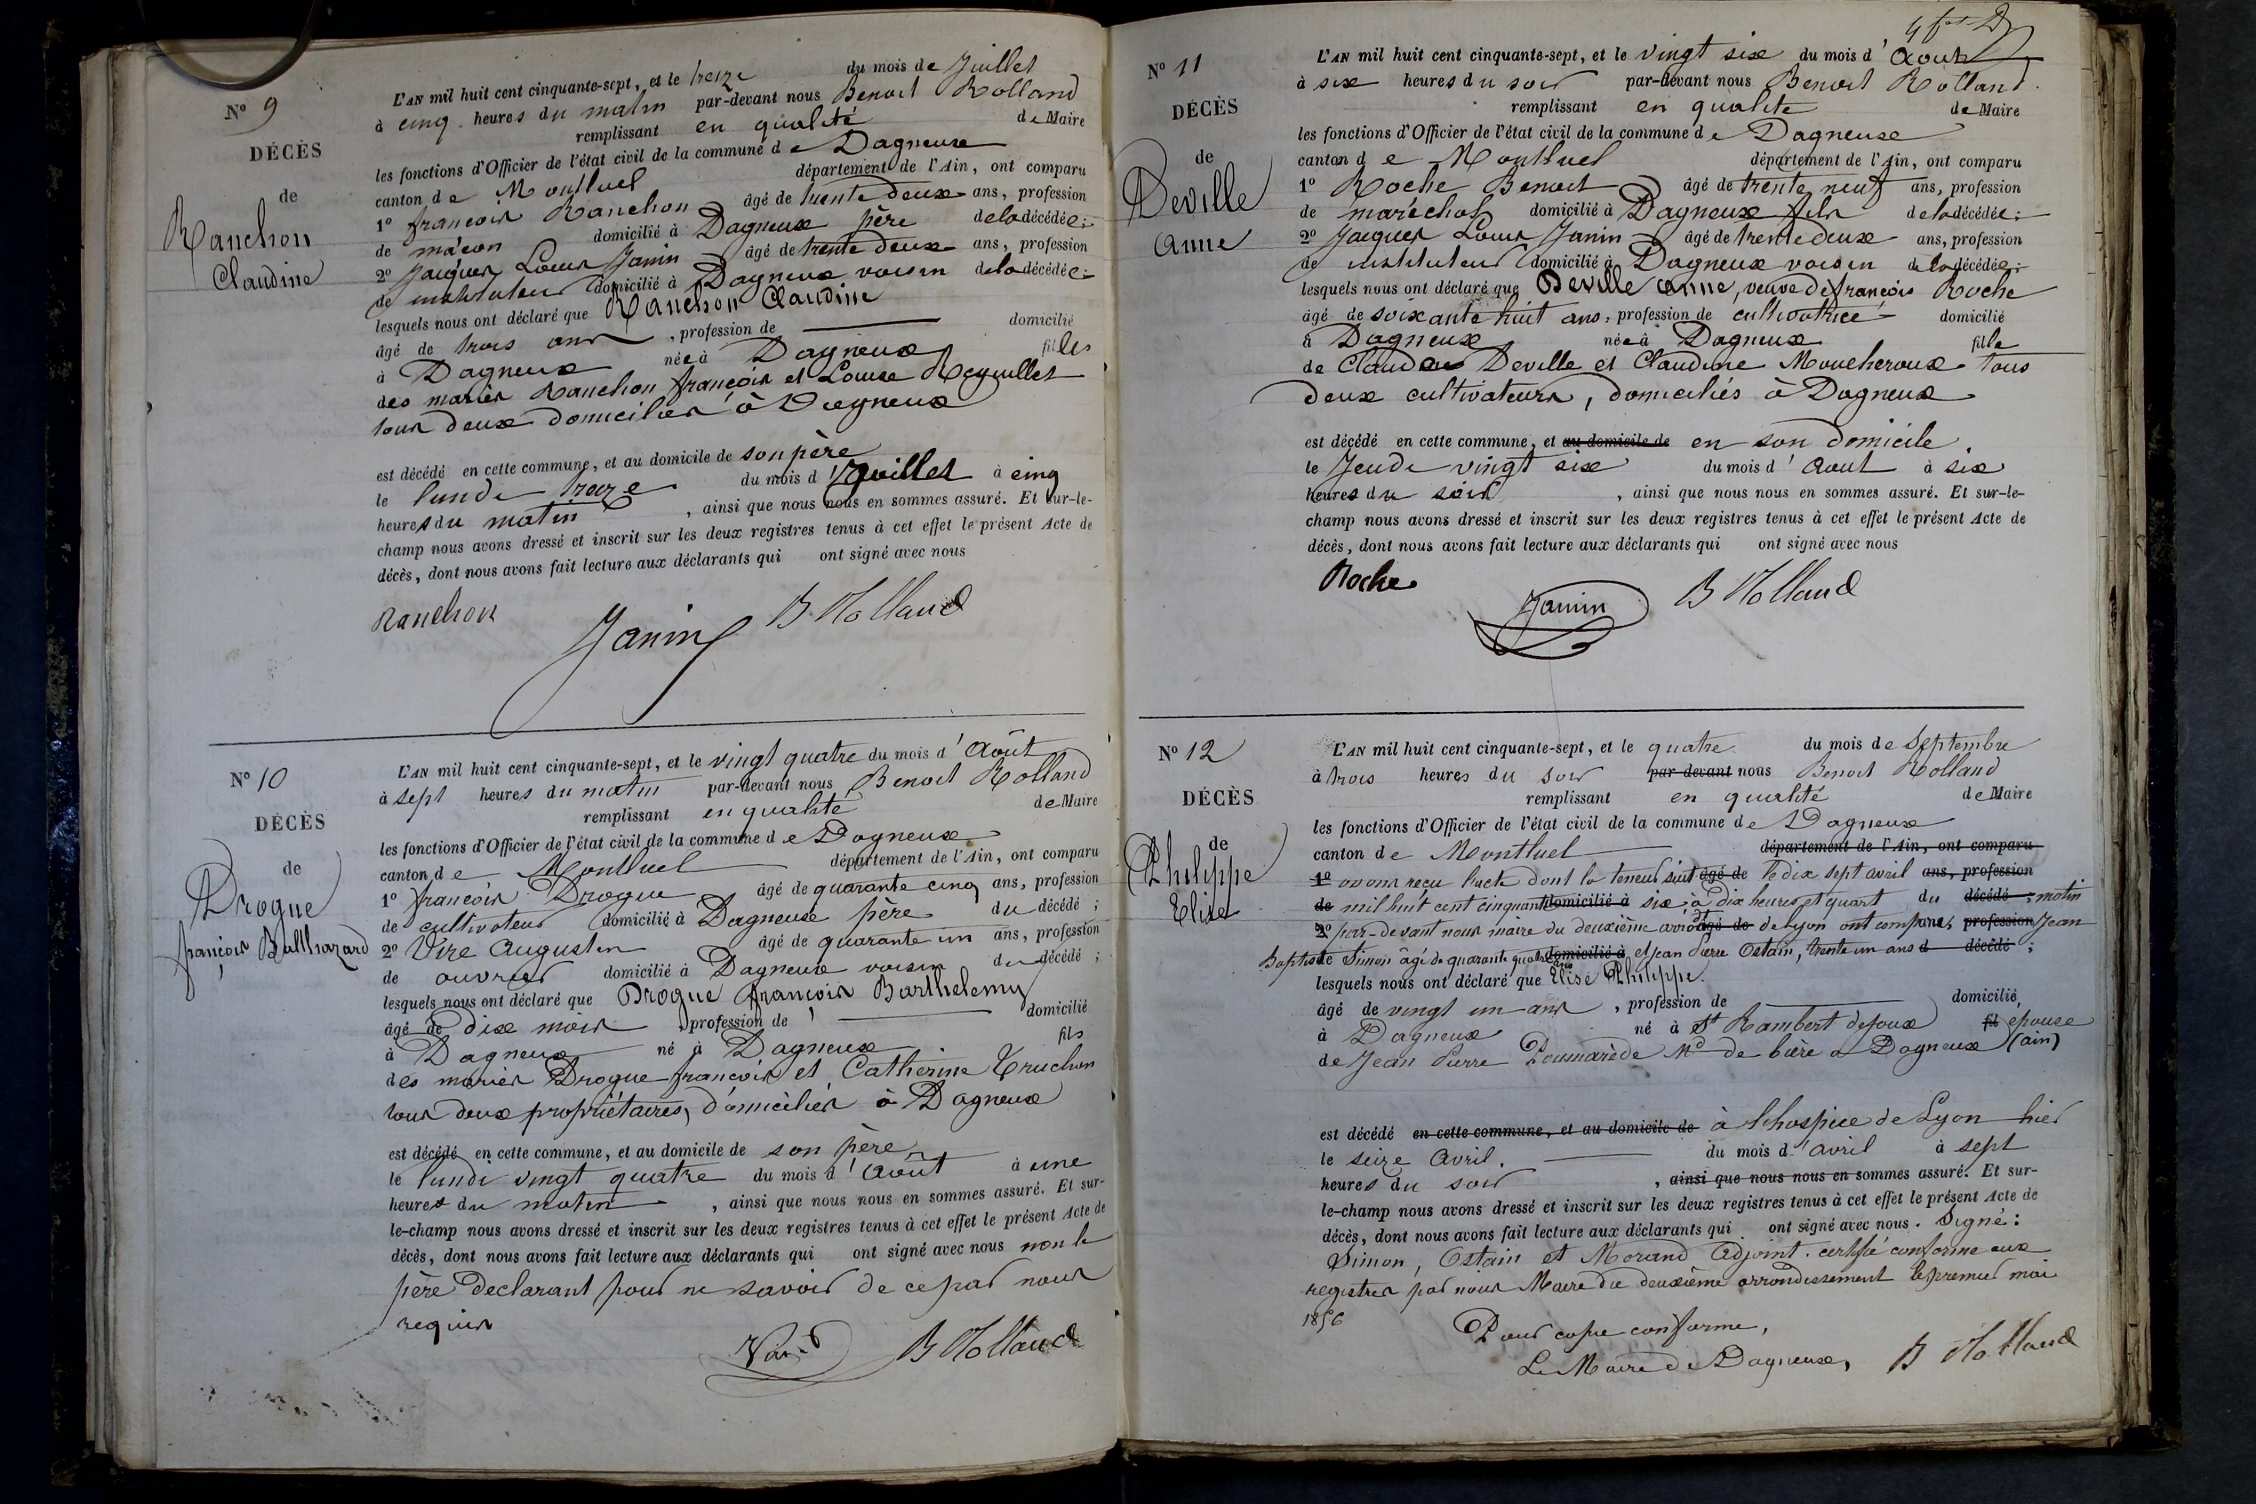 N° 9
DÉCÈS
de
Ranchon
Claudine
L'AN mil huit cent cinquante-sept, et le treize du mois de Juillet
à cinq heures du matin par-devant nous Benoit Rolland
remplissant en qualité de Maire
les fonctions d'Officier de l'état civil de la commune de Dagneux
canton de Montluel département de l'Ain, ont comparu
1° françois Ranchon âgé de trente deux ans, profession
de maçon domicilié à Dagneux père de la décédée;
2° Jacques Louis Janin âgé de trente deux ans, profession
de instituteur domicilié à Dagneux voisin de la décédée;
lesquels nous ont déclaré que Ranchon Claudine
âgé de trois ans, profession de domicilié
à Dagneux née à Dagneux fille
des mariés Ranchon françois et Louise Reguillet
tous deux domiciliés à Dagneux
est décédé en cette commune, et au domicile de son père
le lundi treize du mois d Juillet à cinq
heures du matin, ainsi que nous nous en sommes assuré. Et sur-le-
champ nous avons dressé et inscrit sur les deux registres tenus à cet effet le présent Acte de
décès, dont nous avons fait lecture aux déclarants qui ont signé avec nous
Ranchon Janin B Rolland
N° 10
DÉCÈS
de
Drogue
françois Balthazard
L'AN mil huit cent cinquante-sept, et le vingt quatre du mois d'Août
à sept heures du matin par-devant nous Benoit Rolland
remplissant en qualité de Maire
les fonctions d'Officier de l'état civil de la commune de Dagneux
canton de Montluel département de l'Ain, ont comparu
1° françois Drogue âgé de quarante cinq ans, profession
de cultivateur domicilié à Dagneux père du décédé;
2° Vire Augustin âgé de quarante un ans, profession
de ouvrier domicilié à Dagneux voisin du décédé;
lesquels nous ont déclaré que Drogue françois Barthelemy
âgé de dix mois, profession de domicilié
à Dagneux né à Dagneux fils
des mariés Drogue françois et Catherine Truchon
tous deux propriétaires, domiciliés à Dagneux
est décédé en cette commune, et au domicile de son père
le lundi vingt quatre du mois d'Août à une
heures du matin, ainsi que nous nous en sommes assuré. Et sur-
le-champ nous avons dressé et inscrit sur les deux registres tenus à cet effet le présent Acte de
décès, dont nous avons fait lecture aux déclarants qui ont signé avec nous non le
père declarant pour ne savoir de ce par nous
requis
B Rolland
N° 11
DÉCÈS
de
Deville
Anne
L'AN mil huit cent cinquante-sept, et le vingt six du mois d'Aout
à six heures du soir par-devant nous Benoit Rolland
remplissant en qualité de Maire
les fonctions d'Officier de l'état civil de la commune de Dagneux
canton de Montluel département de l'Ain, ont comparu
1° Roche Benoit âgé de trente neuf ans, profession
de maréchal domicilié à Dagneux fils de la décédée;
2° Jacques Louis Janin âgé de trente deux ans, profession
de instituteur domicilié à Dagneux voisin de la décédée;
lesquels nous ont déclaré que Deville Anne, veuve de françois Roche
âgé de soixante huit ans, profession de cultivatrice domicilié
à Dagneux née à Dagneux fille
de Claude Deville et Claudine Moucheroux tous
deux cultivateurs, domiciliés à Dagneux
est décédé en cette commune, et au domicile de en son domicile
le Jeudi vingt six du mois d'Aout à six
heures du soir, ainsi que nous nous en sommes assuré. Et sur-le-
champ nous avons dressé et inscrit sur les deux registres tenus à cet effet le présent Acte de
décès, dont nous avons fait lecture aux déclarants qui ont signé avec nous
Roche Janin B Rolland
N° 12
DÉCÈS
de
Philippe
Elise
L'AN mil huit cent cinquante-sept, et le quatre du mois de Septembre
à trois heures du soir par-devant nous Benoit Rolland
remplissant en qualité de Maire
les fonctions d'Officier de l'état civil de la commune de Dagneux
canton de Montluel département de l'Ain, ont comparu
1° avons reçu l'acte dont la teneur suit âgé de le dix sept avril ans, profession
de mil huit cent cinquante domicilié à six à dix heures et quart du décédé; matin
2° par-devant nous maire du deuxième arrondt âgé de de Lyon ont comparus profession Jean
Baptiste Simon âgé de quarante quatre ans domicilié à et Jean Pierre Ostain, trente un ans d décédé;
lesquels nous ont déclaré que Elise Philippe.
âgé de vingt un ans, profession de domicilié
à Dagneux né à St Rambert dejoux fil epouse
de Jean Pierre Poumarède Md de bière à Dagneux (ain)
est décédé en cette commune, et au domicile de à l'hospice de Lyon hier
le seize Avril. du mois d'avril à sept
heures du soir, ainsi que nous nous en sommes assuré. Et sur-
le-champ nous avons dressé et inscrit sur les deux registres tenus à cet effet le présent Acte de
décès, dont nous avons fait lecture aux déclarants qui ont signé avec nous. Signé:
Simon, Ostain et Morand Adjoint. certifié conforme aux
registres par nous Maire du deuxième arrondissement le premier mai
1856
Pour copie conforme,
Le Maire de Dagneux, B Rolland